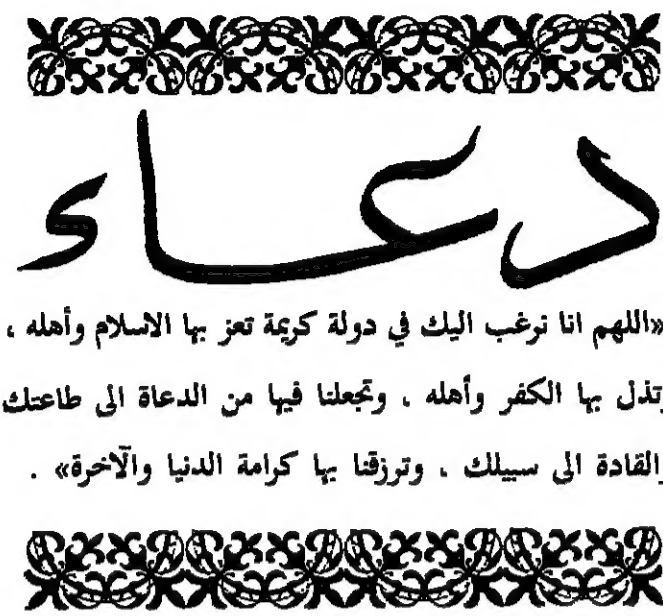 دعاء
«اللهم انا نرغب اليك في دولة كريمة تعز بها الاسلام وأهله ،
وتذل بها الكفر وأهله ، وتجعلنا فيها من الدعاة الى طاعتك
والقادة الى سبيلك ، وترزقنا بها كرامة الدنيا والآخرة» .